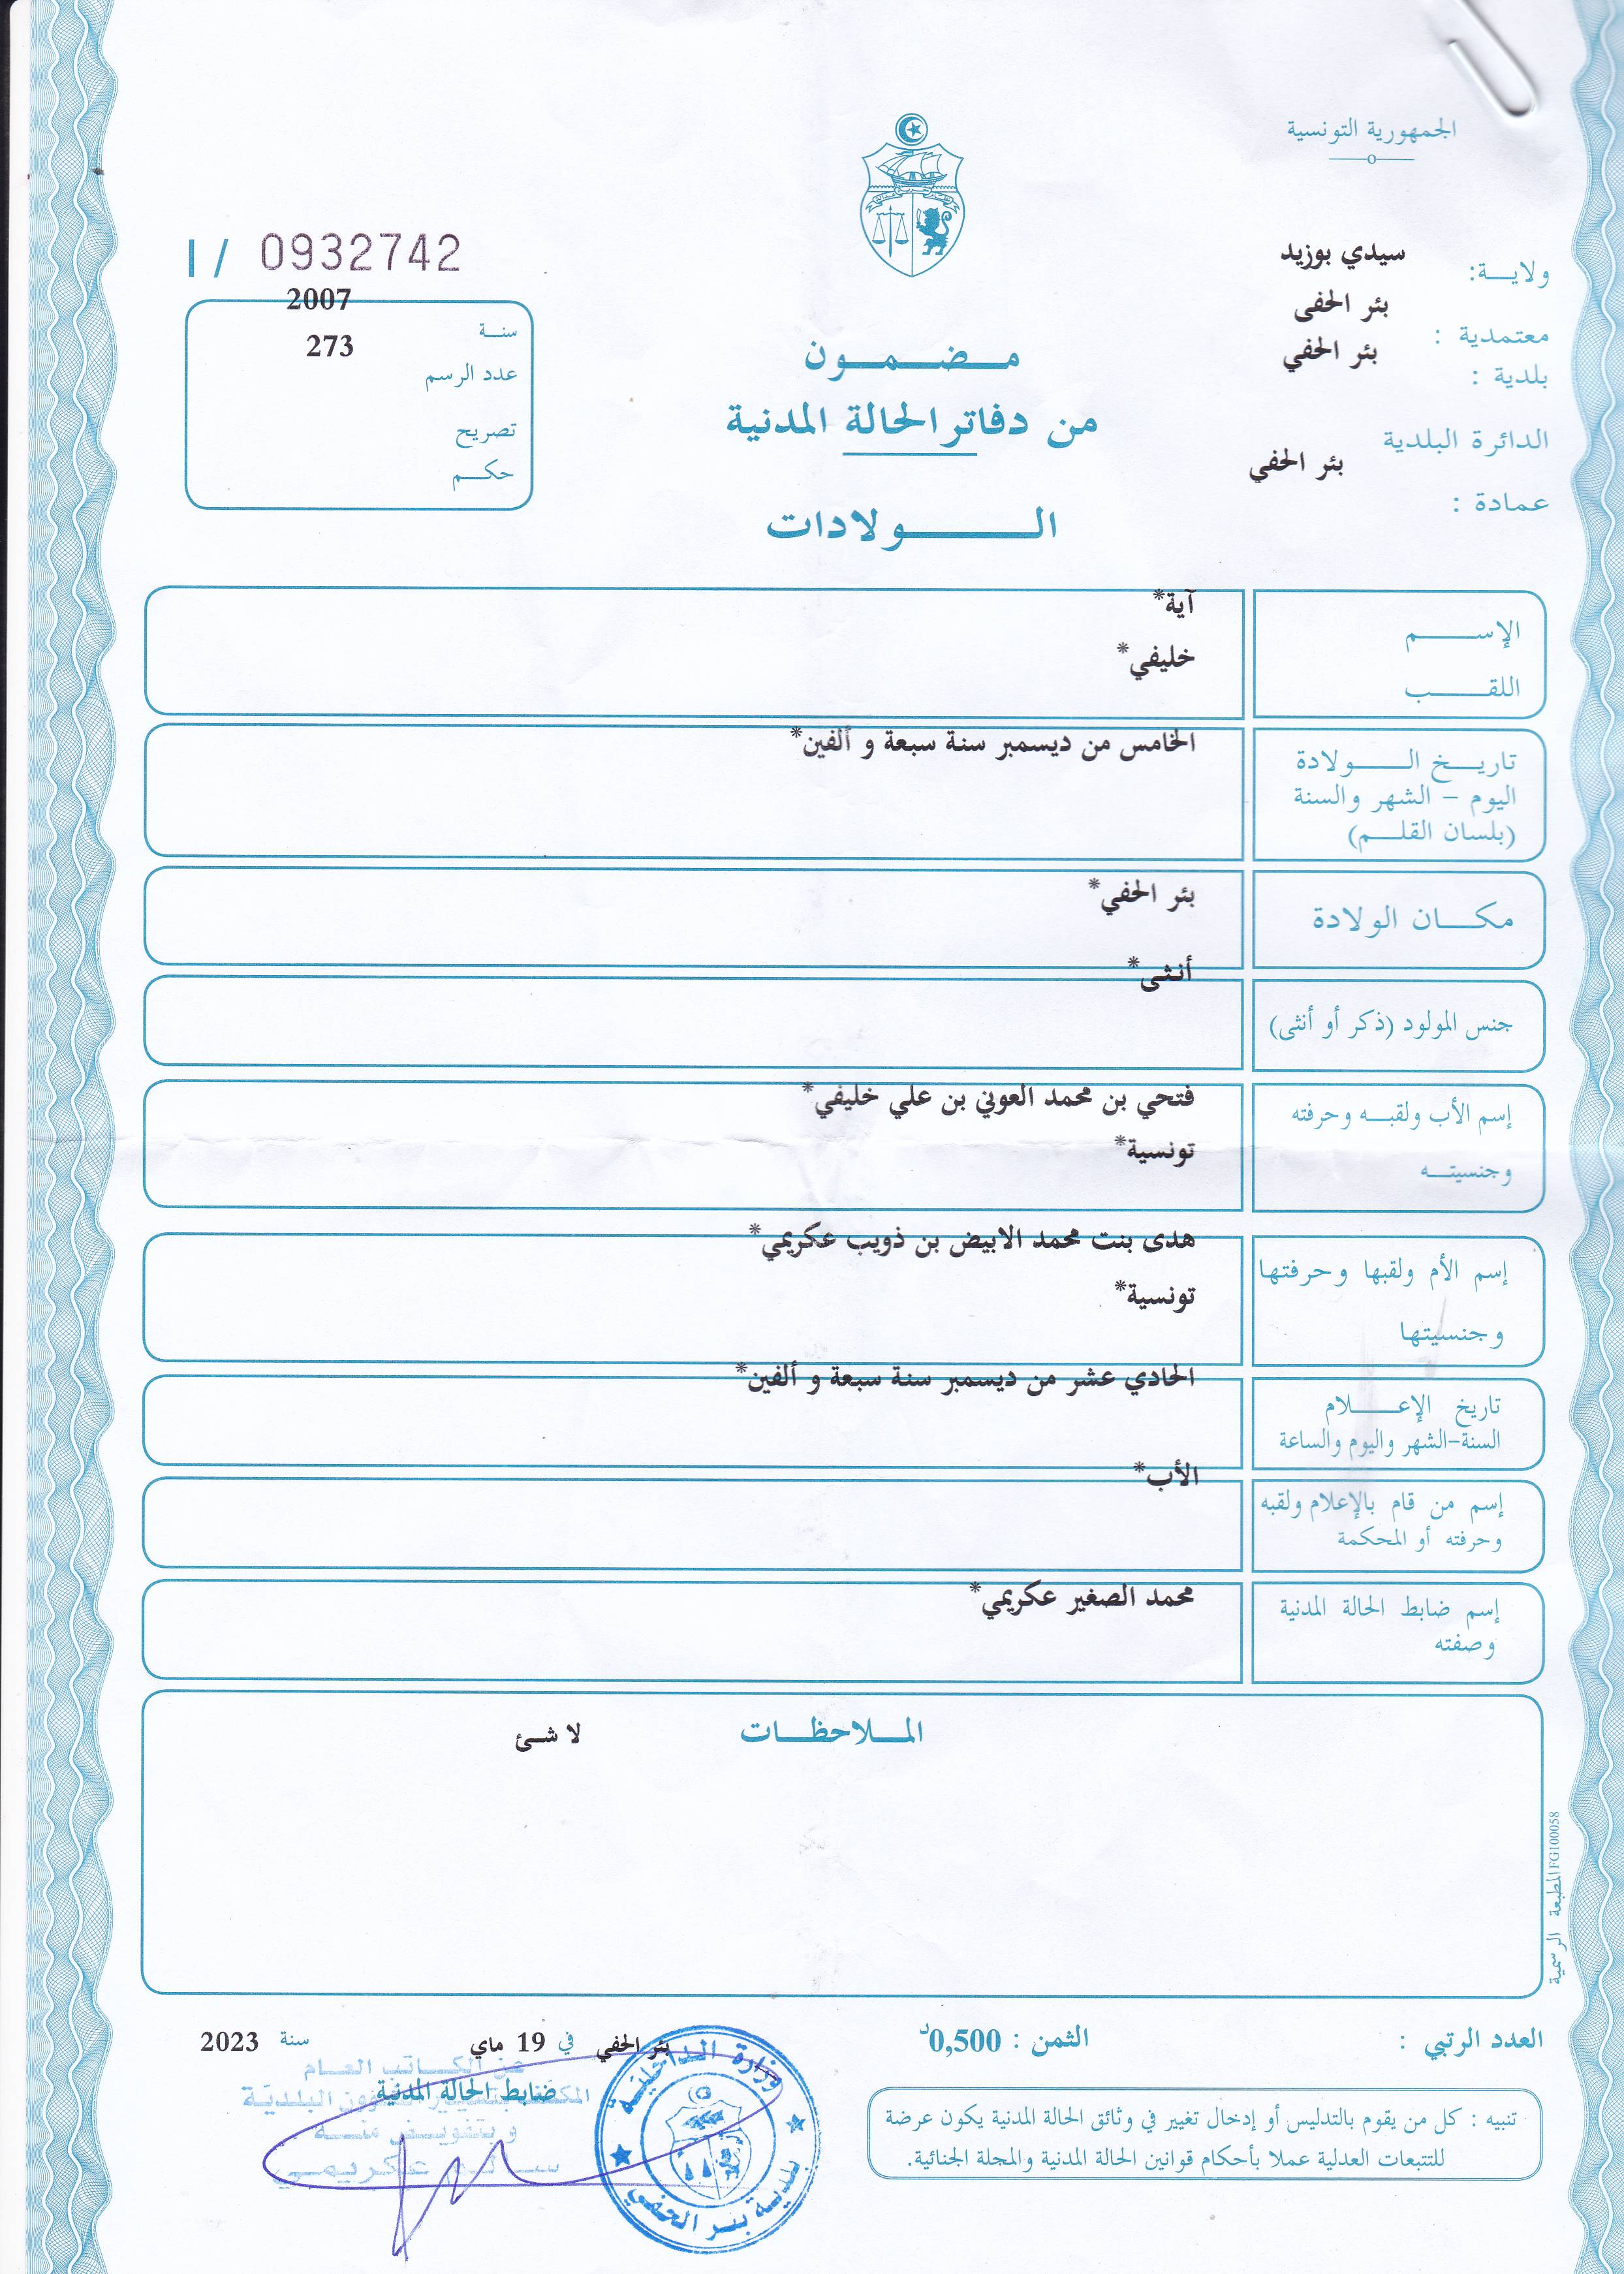 الجمهورية التونسية
ولايـــة: سيدي بوزيد
معتمدية : بئر الحفى
بلدية : بئر الحفي
الدائرة البلدية
بئر الحفي
عمادة :
I / 0932742
سنــة 2007
عدد الرسم 273
تصريح
حكــم
مــضــمــون
من دفاتر الحالة المدنية
الـــــولادات
الإســـــم آية*
اللقـــــب خليفي*
تاريـــخ الـــــولادة الخامس من ديسمبر سنة سبعة و ألفين*
اليوم – الشهر والسنة
(بلسان القلـــم)
مكـــان الولادة بئر الحفي*
جنس المولود (ذكر أو أنثى) أنثى*
إسم الأب ولقبــه وحرفته فتحي بن محمد العوني بن علي خليفي*
وجنسيتــه تونسية*
إسم الأم ولقبها وحرفتها هدى بنت محمد الابيض بن ذويب عكريمي*
وجنسيتها تونسية*
تاريخ الإعـــــلام الحادي عشر من ديسمبر سنة سبعة و ألفين*
السنة-الشهر واليوم والساعة
إسم من قام بالإعلام ولقبه الأب*
وحرفته أو المحكمة
إسم ضابط الحالة المدنية محمد الصغير عكريمي*
وصفته
المــلاحظــات لا شئ
المطبعة الرسمية FG100058
العدد الرتبي :
الثمن : 0,500د
بئر الحفي في 19 ماي سنة 2023
ضابط الحالة المدنية
عن الكــاتب العــام
المكلف بتسيير الشؤون البلديـة
و بتفويــض منــه
ســالم عكريمــي
وزارة الـداخليـة
بلديـة بئـر الحفـي
تنبيه : كل من يقوم بالتدليس أو إدخال تغيير في وثائق الحالة المدنية يكون عرضة
للتتبعات العدلية عملا بأحكام قوانين الحالة المدنية والمجلة الجنائية.